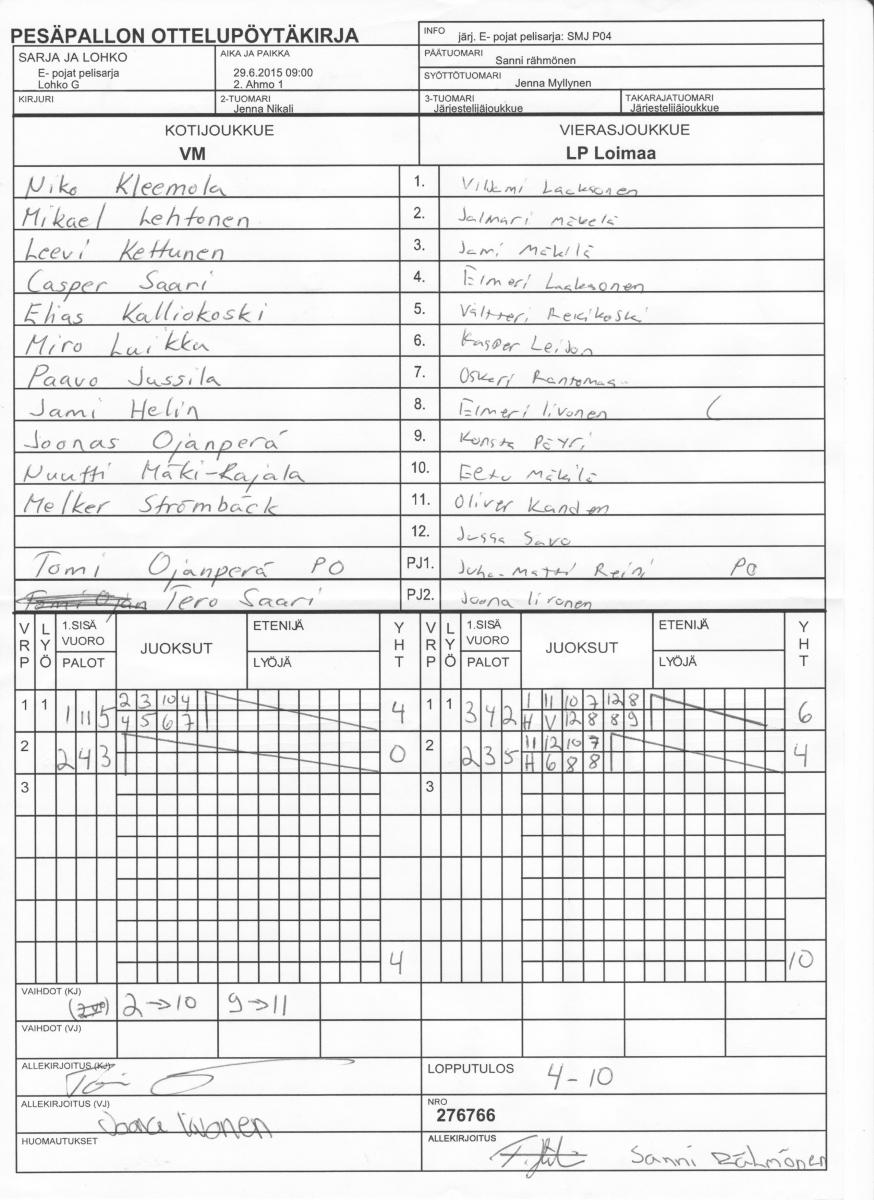 PESÄPALLON OTTELUPÖYTÄKIRJA
INFO järj. E- pojat pelisarja: SMJ P04
SARJA JA LOHKO
E- pojat pelisarja
Lohko G
AIKA JA PAIKKA
29.6.2015 09:00
2. Ahmo 1
PÄÄTUOMARI
Sanni rähmönen
SYÖTTÖTUOMARI
Jenna Myllynen
KIRJURI
2-TUOMARI
Jenna Nikali
3-TUOMARI
Järjestelijäjoukkue
TAKARAJATUOMARI
Järjestelijäjoukkue
KOTIJOUKKUE
VM
VIERASJOUKKUE
LP Loimaa
Niko Kleemola 1. Villami Laaksonen
Mikael Lehtonen 2. Jalmari Mäkelä
Leevi Kettunen 3. Jami Mäkilä
Casper Saari 4. Elmeri Laaksonen
Elias Kalliokoski 5. Valtteri Rekikoski
Miro Luikku 6. Kasper Leidon
Paavo Jussila 7. Oskari
Jami Helin 8. Elmeri Iivonen
Joonas Ojanperä 9. Konsta Päyri
Nuutti Mäki-Rajala 10. Eetu Mäkilä
Melker Strömbäck 11. Oliver Kanden
12. Jussa Savo
Tomi Ojanperä PO PJ1. Juha-Matti Reini PO
Tero Saari PJ2. Joona Iivonen
VRP LYÖ 1.SISÄ VUORO PALOT JUOKSUT ETENIJÄ LYÖJÄ YHT
VRP LYÖ 1.SISÄ VUORO PALOT JUOKSUT ETENIJÄ LYÖJÄ YHT
1 1 1 11 5 2 3 10 4 4
4 5 6 7
1 1 3 4 2 1 11 10 7 12 8 6
H V 12 8 8 9
2 2 4 3 0
2 2 3 5 11 12 10 7 4
H 6 8 8
3 3
4 10
VAIHDOT (KJ)
2→10 9→11
VAIHDOT (VJ)
ALLEKIRJOITUS (KJ)
LOPPUTULOS 4-10
ALLEKIRJOITUS (VJ) Joona Iivonen
NRO
276766
HUOMAUTUKSET
ALLEKIRJOITUS Sanni Rähmönen